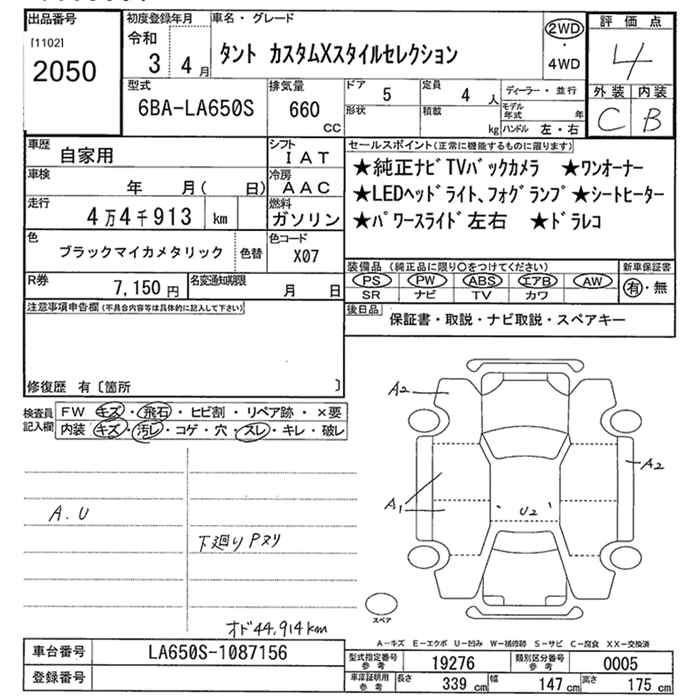 出品番号
[1102]
2050
初度登録年月
令和
3 4月
車名・グレード
タント カスタムXスタイルセレクション
2WD
・
4WD
評価点
4
外装 内装
C B
型式
6BA-LA650S
排気量
660
CC
ドア 5
形状
定員 4 人
積載 kg
ディーラー・並行
モデル年式 年
ハンドル 左・右
車歴
自家用
シフト
IAT
車検
年 月( 日)
冷房
AAC
走行
4万4千913 km
燃料
ガソリン
色
ブラックマイカメタリック
色替
色コード
X07
R券
7,150円
名変通知期限
月 日
セールスポイント(正常に機能するものに限ります)
★純正ナビTVバックカメラ ★ワンオーナー
★LEDヘッドライト、フォグランプ★シートヒーター
★パワースライド左右 ★ドラレコ
装備品 (純正品に限り○をつけてください)
PS PW ABS エアB AW
SR ナビ TV カワ
新車保証書
有・無
後日品
保証書・取説・ナビ取説・スペアキー
注意事項申告欄(不具合内容等は具体的に記入して下さい)
修復歴 有〔箇所 〕
検査員記入欄
FW キズ・飛石・ヒビ割・リペア跡・×要
内装 キズ・汚レ・コゲ・穴・スレ・キレ・破レ
A.U
下廻りPヌリ
オド44,914km
A2
A2
A1
U2
スペア
A-キズ E-エクボ U-凹み W-補修跡 S-サビ C-腐食 XX-交換済
車台番号
LA650S-1087156
登録番号
型式指定番号
参考
19276
類別区分番号
参考
0005
車庫証明用
参考
長さ 339 cm 幅 147 cm 高さ 175 cm